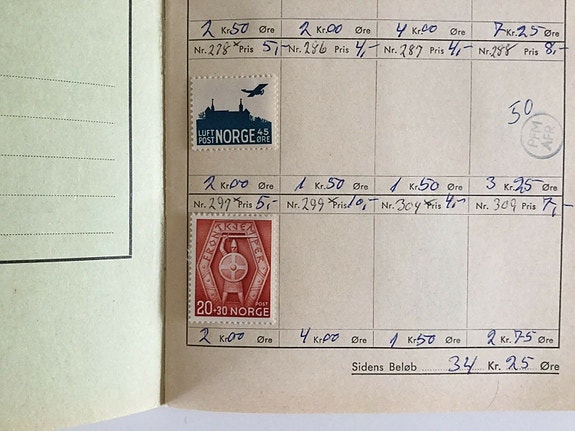 2 Kr. 50 Øre 2 Kr. 00 Øre 4 Kr. 00 Øre 7 Kr. 25 Øre
Nr. 278 x Pris 5,- Nr. 286 Pris 4,- Nr. 287 Pris 4,- Nr. 288 Pris 8,-
LUFT
POST NORGE 45
ØRE
50
PFM
AFR
2 Kr. 00 Øre 1 Kr. 50 Øre 1 Kr. 50 Øre 3 Kr. 25 Øre
Nr. 297 x Pris 5,- Nr. 299 x Pris 10,- Nr. 304 x Pris 4,- Nr. 309 Pris 7,-
FRONTKJEMPER
POST
20+30 NORGE
2 Kr. 00 Øre 4 Kr. 00 Øre 1 Kr. 50 Øre 2 Kr. 75 Øre
Sidens Beløb 34 Kr. 25 Øre